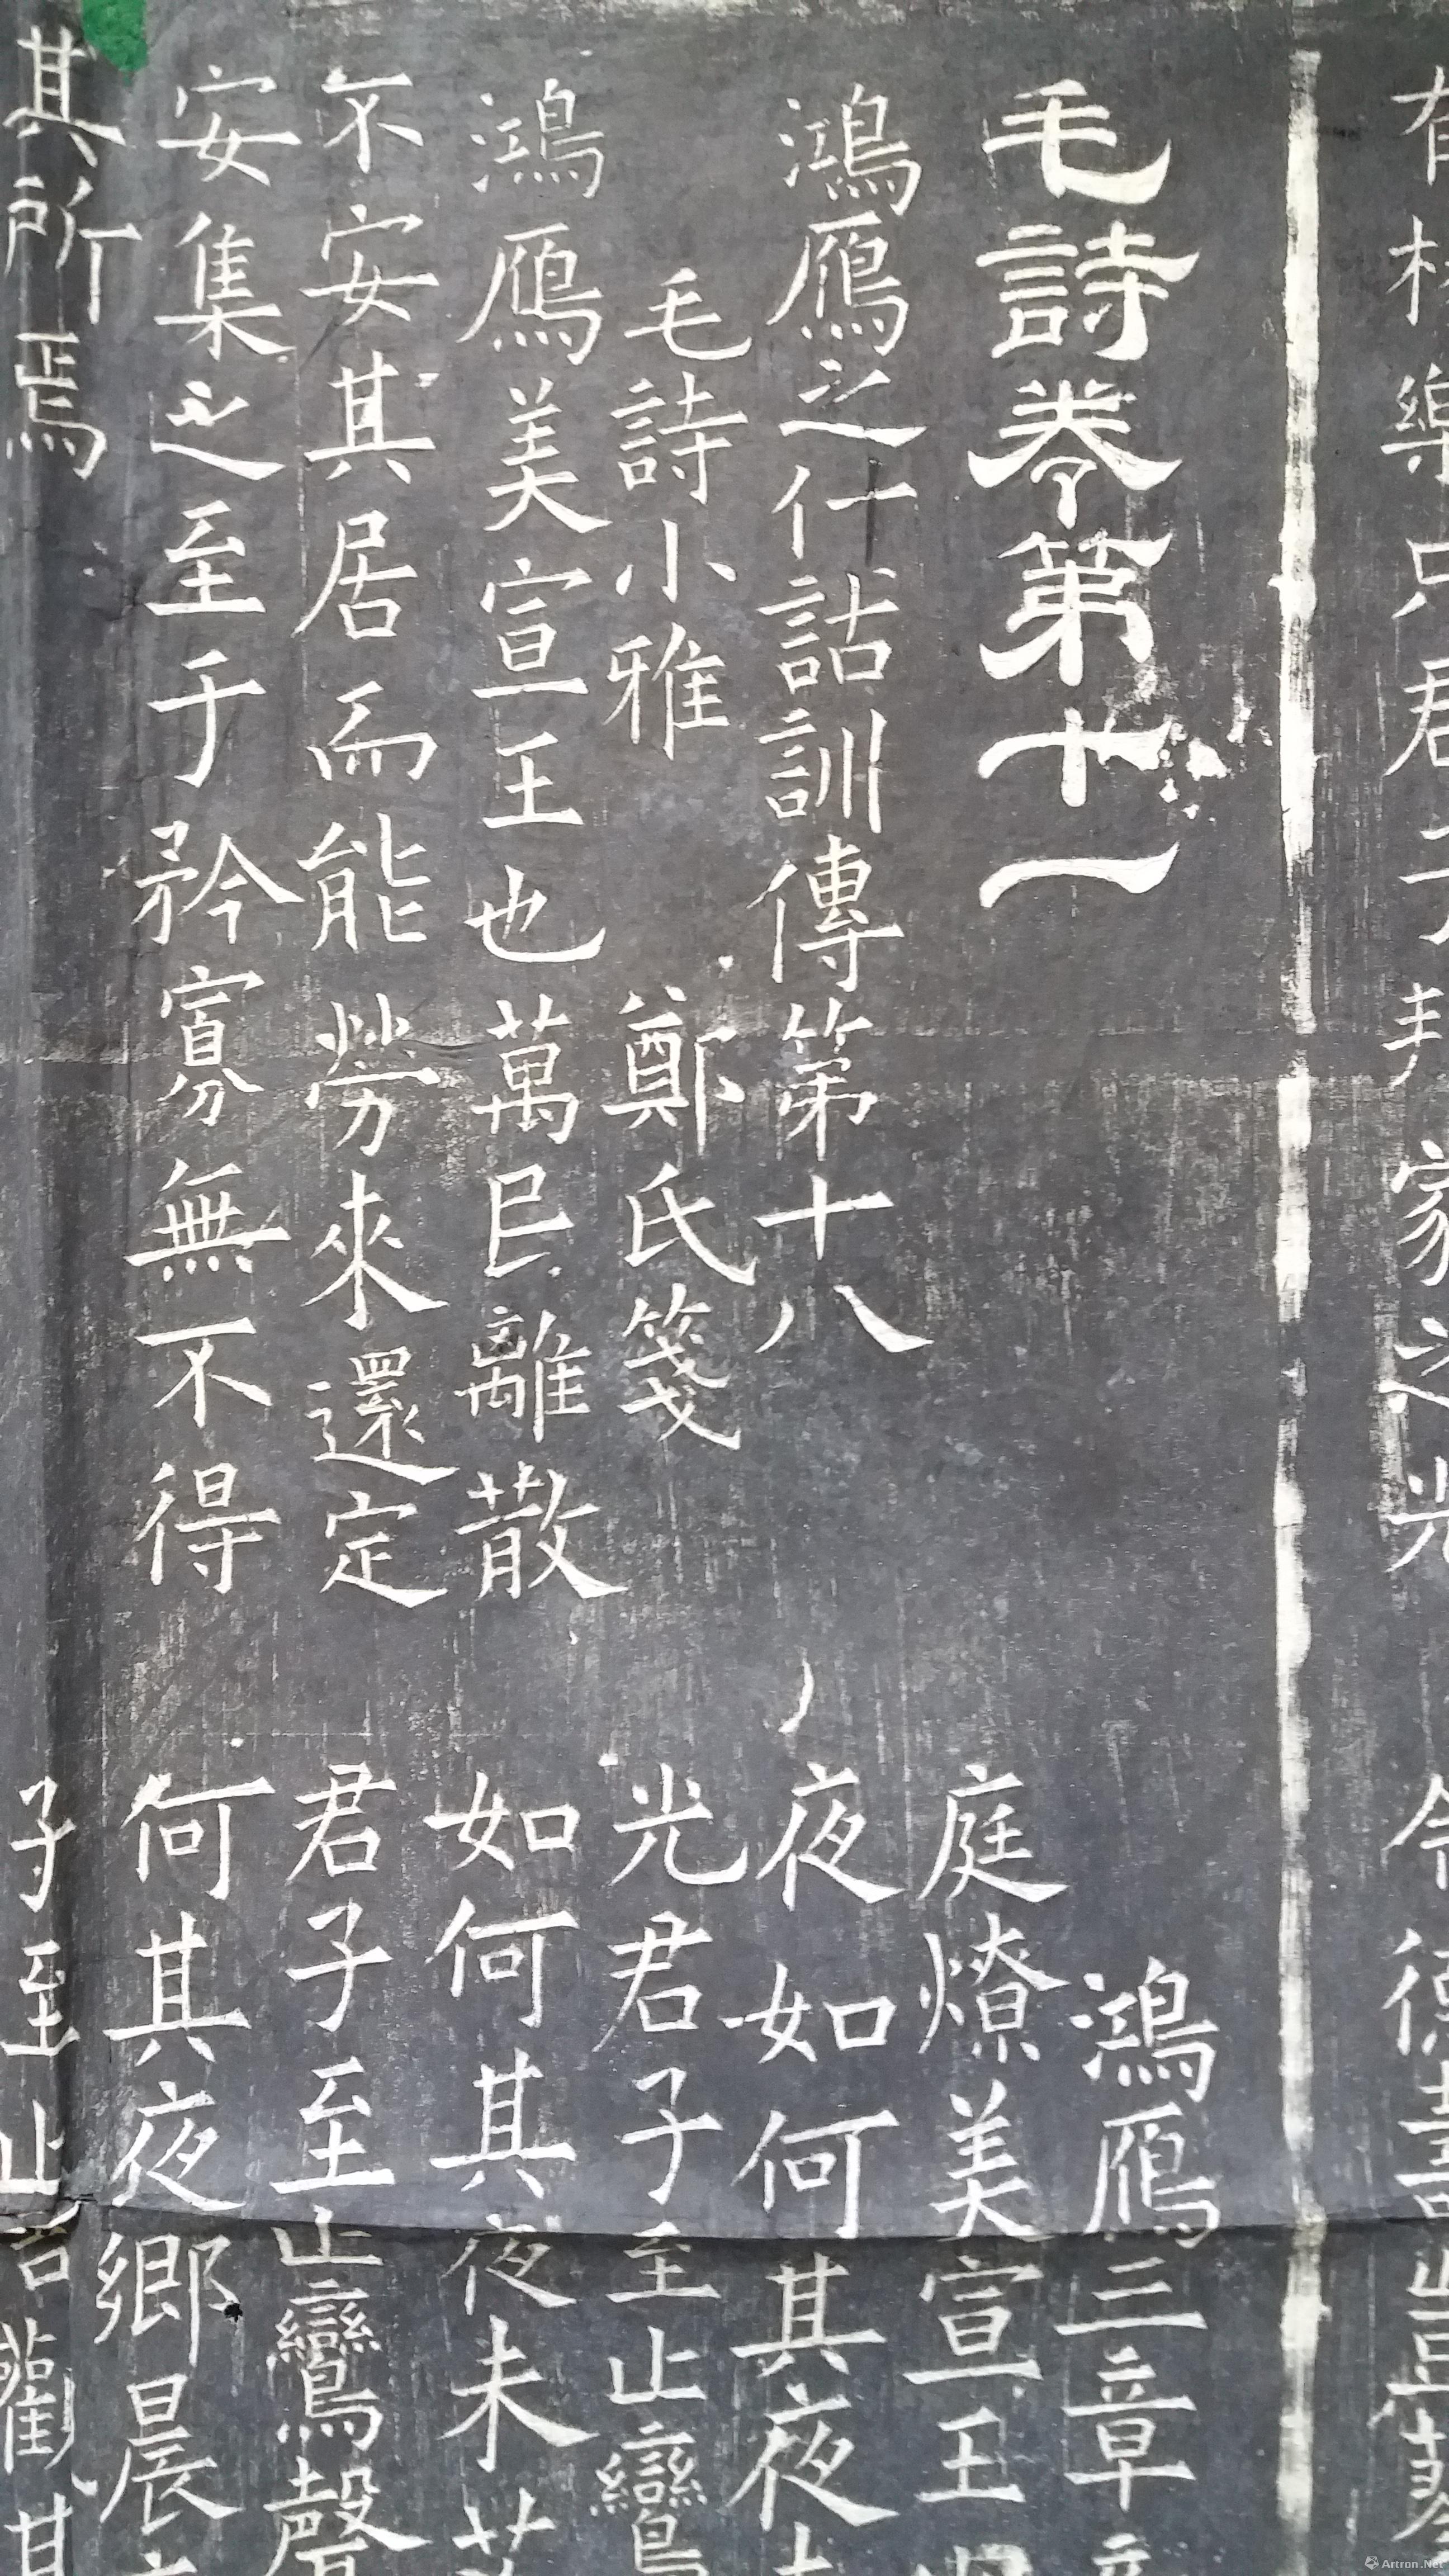 樂只君子邦家之光
毛詩卷第十一
鴻鴈之什詁訓傳第十八
毛詩小雅 鄭氏箋
鴻鴈美宣王也萬民離散
不安其居而能勞來還定
安集之至于矜寡無不得
其所焉
令德壽豈蓼
鴻鴈三章
庭燎美宣王
夜如何其夜未
光君子至止鸞
如何其夜未艾
君子至止鸞聲
何其夜鄉晨
子至止言觀其
Artron.Net